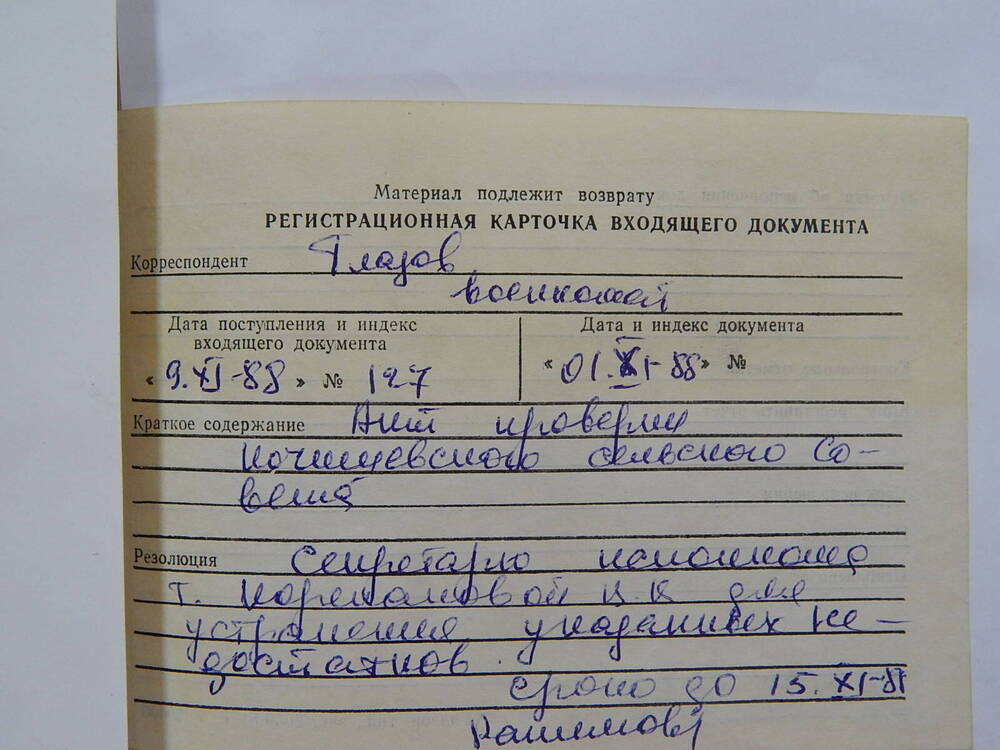 Материал подлежит возврату
РЕГИСТРАЦИОННАЯ КАРТОЧКА ВХОДЯЩЕГО ДОКУМЕНТА
Корреспондент Глазов
военкомат
Дата поступления и индекс
входящего документа
« 9.XI-88 » № 127
Дата и индекс документа
« 01.XI-88 » №
Краткое содержание Акт проверки
Кочишевского сельского Со-
вета
Резолюция Секретарю исполкома
т. для
устранения указанных не-
достатков.
срок до 15.XI-88